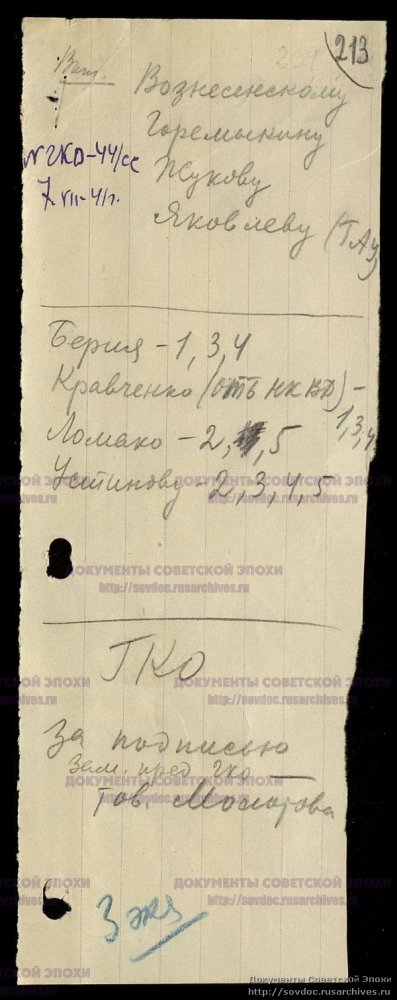 213
Вып.
Вознесенскому
Горемыкину
Жукову
Яковлеву (ГАУ)
№ ГКО-44/сс
7 VII-41 г.
Берия - 1, 3, 4
Кравченко (отв НКВД) -
1, 3, 4
Ломако - 2, 5
Устинову 2, 3, 4, 5
ДОКУМЕНТЫ СОВЕТСКОЙ ЭПОХИ
http://sovdoc.rusarchives.ru
ГКО
За подписью
Зам. пред ГКО —
тов. Молотова
3 экз
Документы Советской Эпохи
http://sovdoc.rusarchives.ru